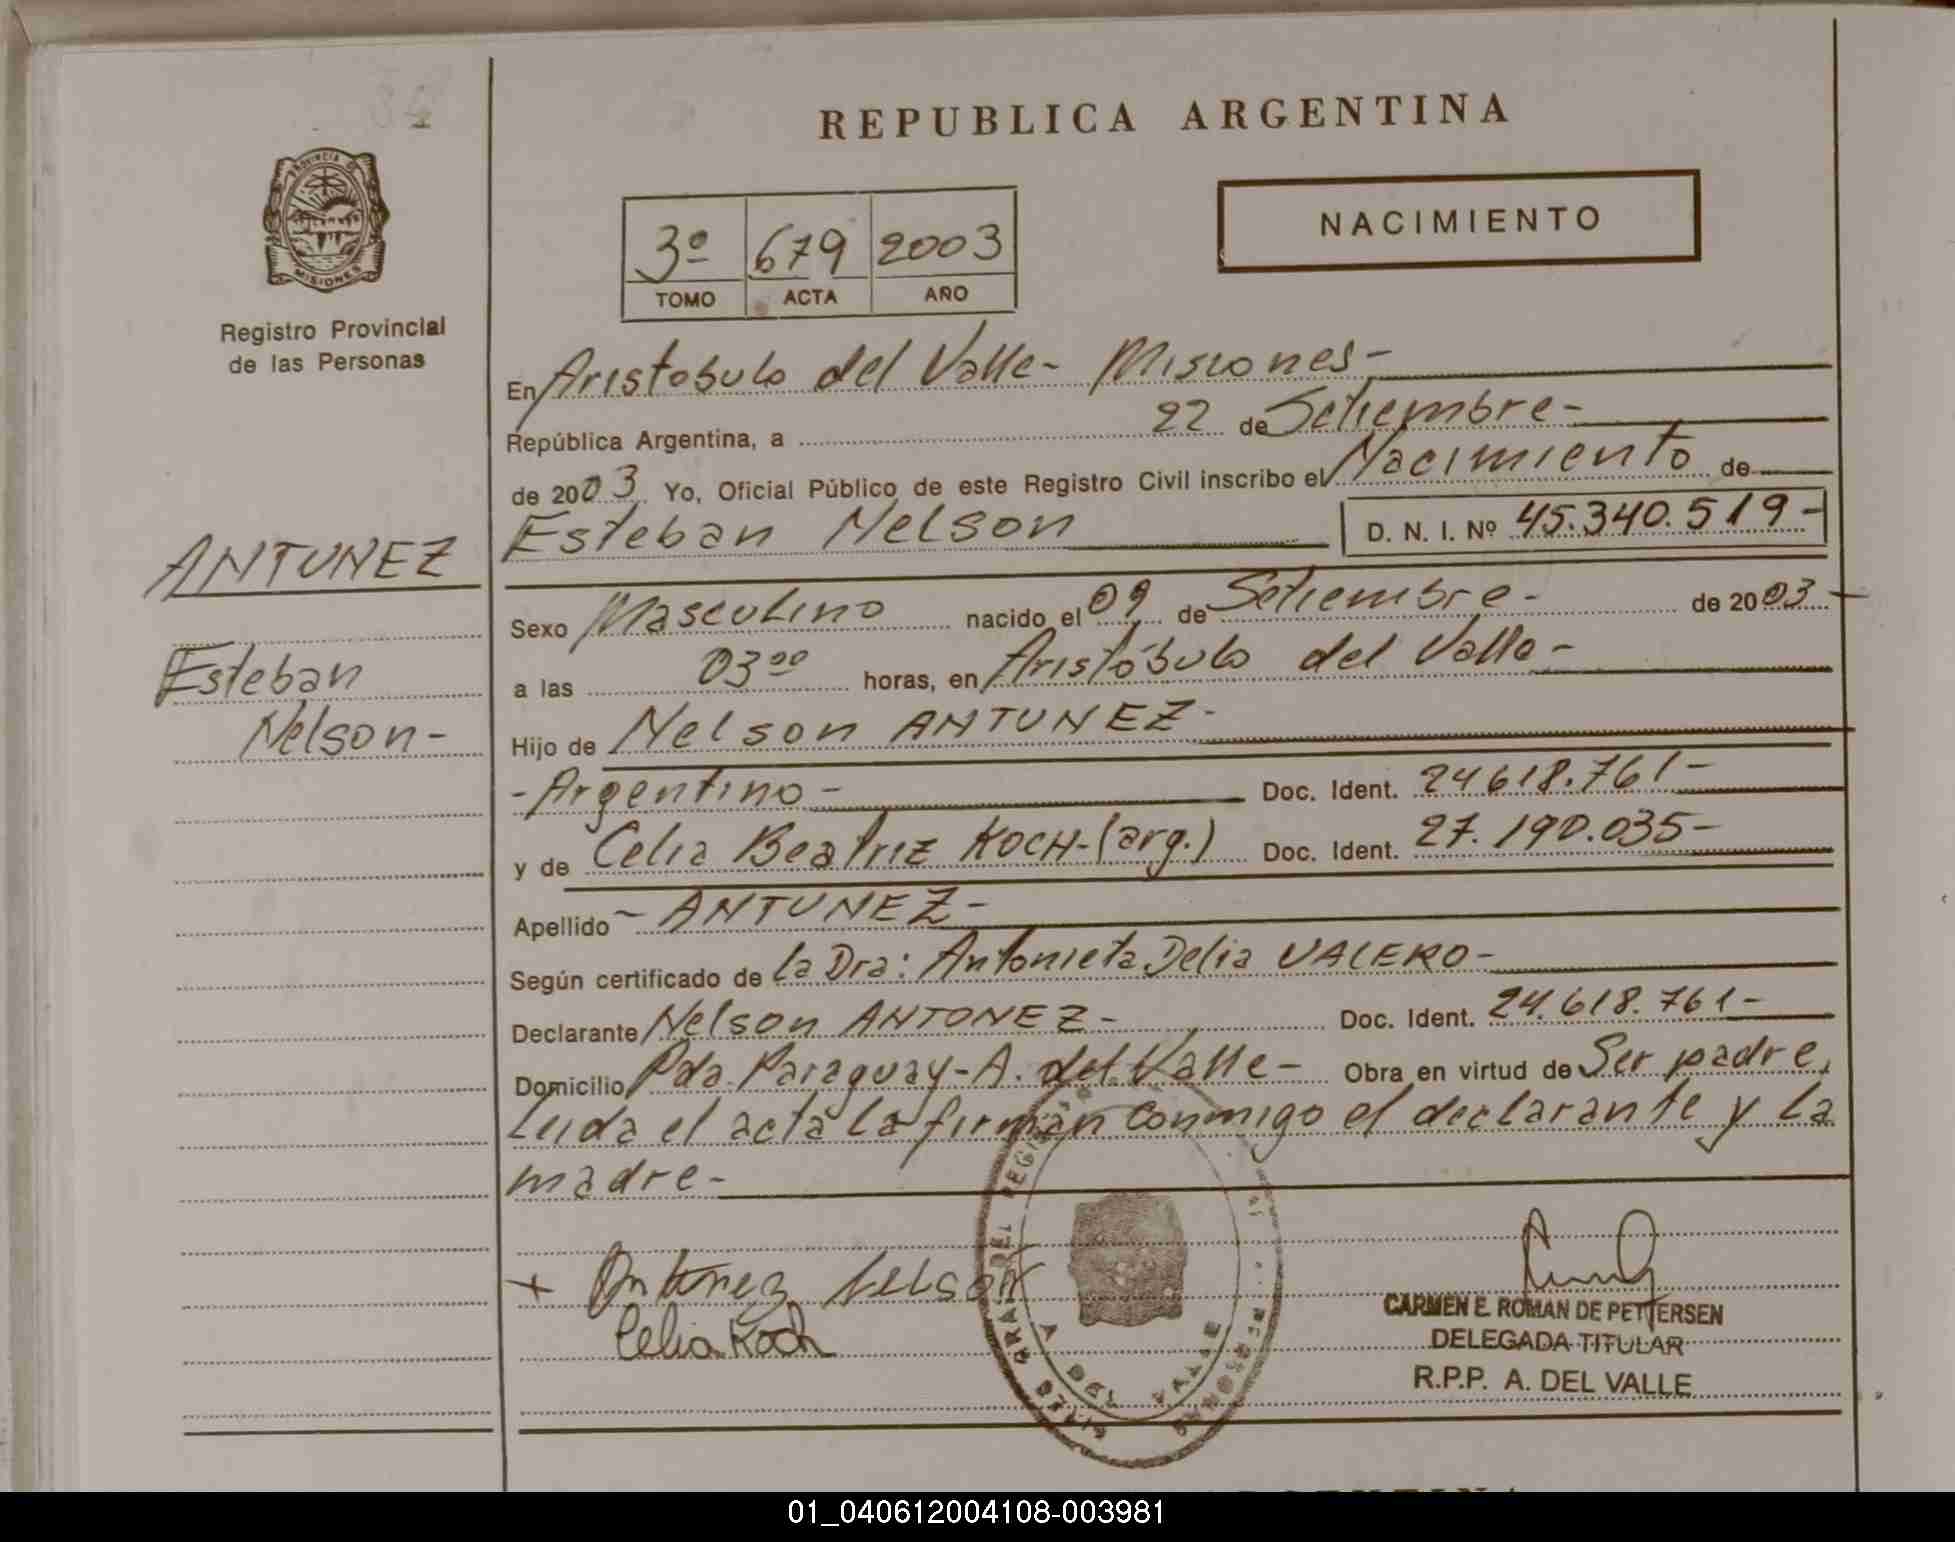 REPUBLICA ARGENTINA
PROVINCIA DE
MISIONES
Registro Provincial
de las Personas
NACIMIENTO
3º 679 2003
TOMO ACTA AÑO
En Aristobulo del Valle- Misiones-
República Argentina, a 22 de Setiembre-
de 2003 Yo, Oficial Público de este Registro Civil inscribo el Nacimiento de
Esteban Nelson D. N. I. Nº 45.340.519-
ANTUNEZ
Esteban
Nelson-
Sexo Masculino nacido el 09 de Setiembre- de 2003
a las 03⁰⁰ horas, en Aristóbulo del Valle-
Hijo de Nelson ANTUNEZ-
-Argentino- Doc. Ident. 24618.761-
y de Celia Beatriz KOCH-(arg.) Doc. Ident. 27.190.035-
Apellido - ANTUNEZ-
Según certificado de la Dra: Antonieta Delia VALERO-
Declarante Nelson ANTONEZ- Doc. Ident. 24.618.761-
Domicilio Pda. Paraguay-A. del Valle- Obra en virtud de Ser padre,
Leida el acta la firman conmigo el declarante y la
madre-
+ Antunez Nelson
Celia Koch
CARMEN E. ROMAN DE PETTERSEN
DELEGADA TITULAR
R.P.P. A. DEL VALLE
01_040612004108-003981